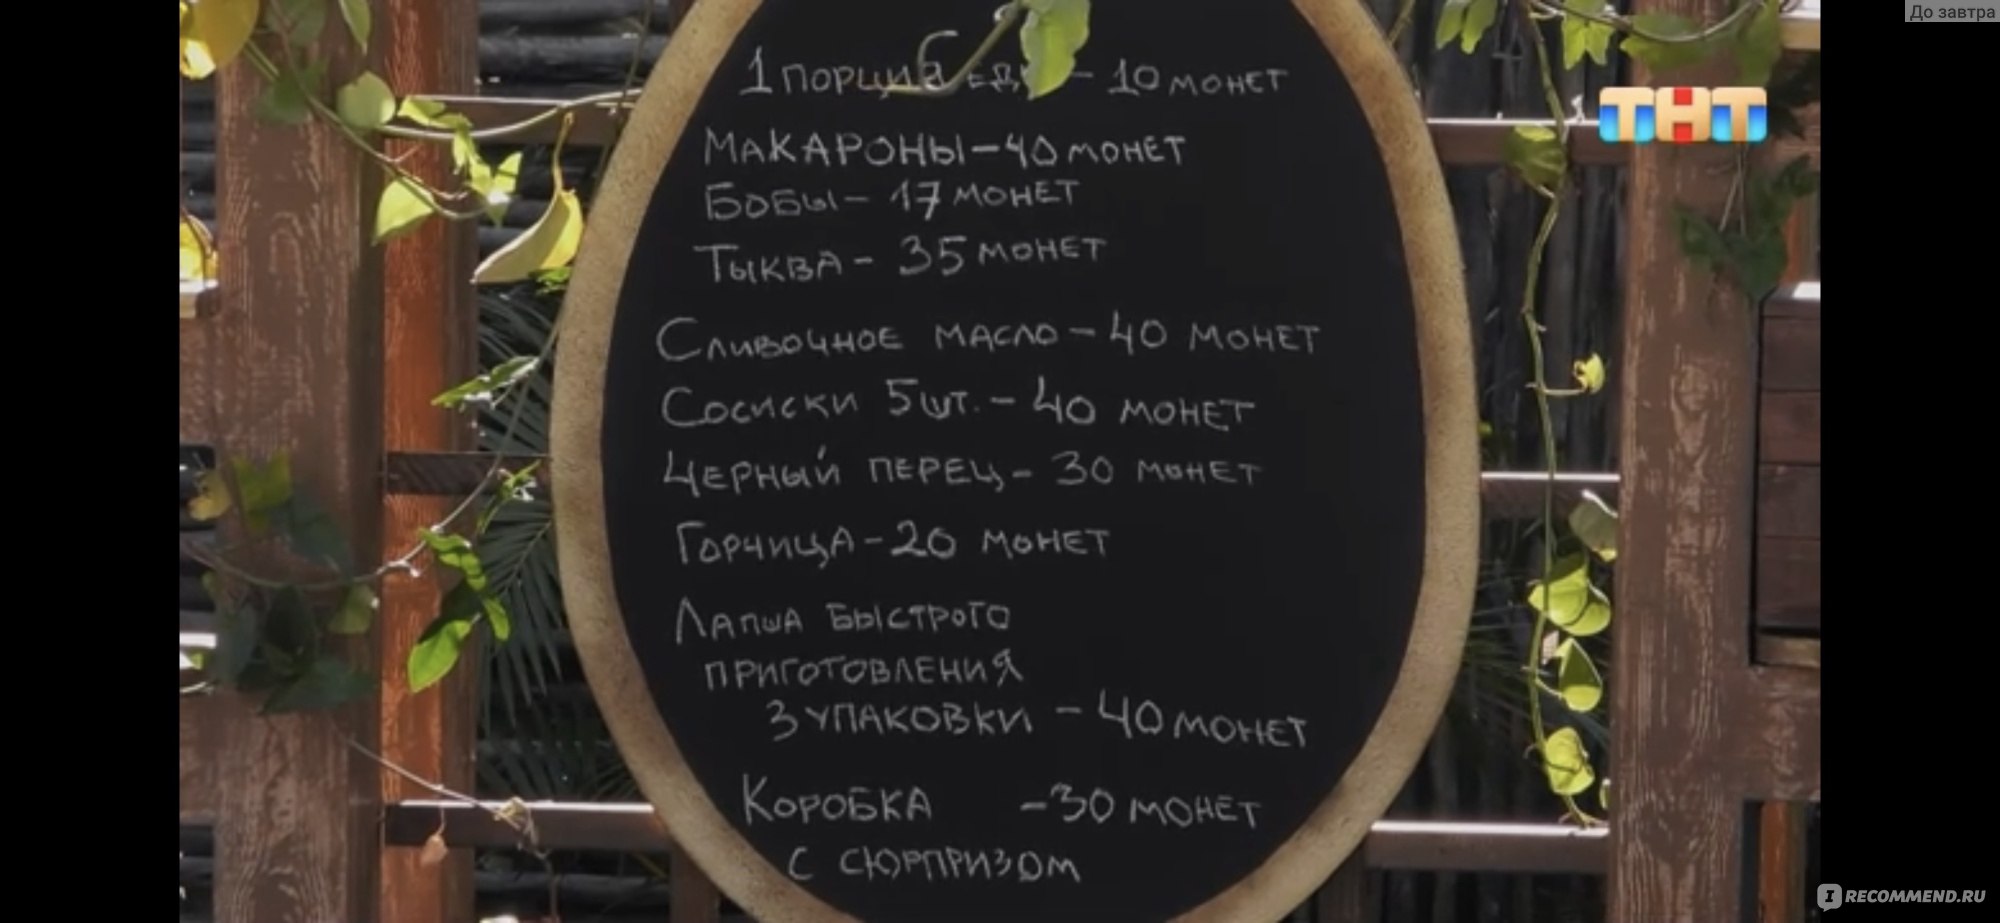 До завтра
1 порция еды - 10 монет
ТНТ
Макароны - 40 монет
Бобы - 17 монет
Тыква - 35 монет
Сливочное масло - 40 монет
Сосиски 5 шт. - 40 монет
Черный перец - 30 монет
Горчица - 20 монет
Лапша быстрого
приготовления
3 упаковки - 40 монет
Коробка - 30 монет
с сюрпризом
IRECOMMEND.RU